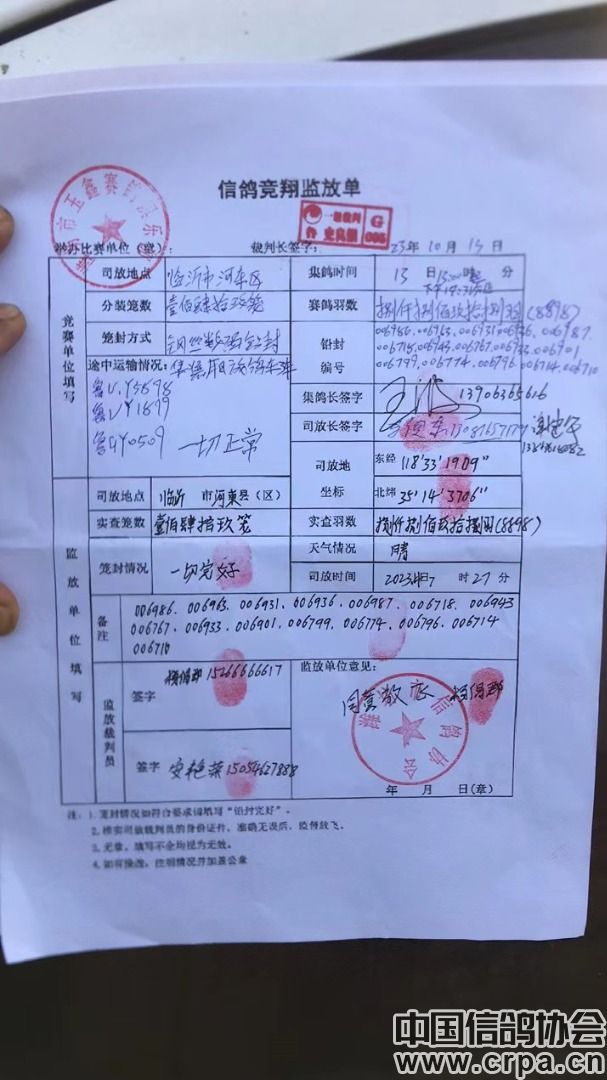 信鸽竞翔监放单
市玉鑫赛鸽俱乐
一级裁判 G
鲁 史良银 005
举办比赛单位(章): 裁判长签字: 23年10月15日
竞赛单位填写
司放地点 临沂市河东区 集鸽时间 13日 时 分
分装笼数 壹佰肆拾玖笼 赛鸽羽数 捌仟捌佰玖拾捌羽(8898)
笼封方式 钢丝 铅封 铅封编号
006986.006963.006931.006936.006987
006718.006943.006767.006933.006901
006799.006774.006796.006714.006710
途中运输情况:
鲁VY5898
鲁VY1899
鲁GY0509 一切正常
集鸽长签字 13906365616
司放长签字
司放地坐标 东经 118°33′19.09″
北纬 35°14′37.06″
监放单位填写
司放地点 临沂 市河東县(区)
实查笼数 壹佰肆拾玖笼 实查羽数 捌仟捌佰玖拾捌羽(8898)
笼封情况 一切完好 天气情况 晴
司放时间 7时27分
备注 006986.006963.006931.006936.006987.006718.006943
006767.006933.006901.006799.006774.006796.006714
006710
监放裁判员
签字 15266666617
签字 安艳荣 15054627888
监放单位意见:
同意放飞
信鸽协会
年 月 日(章)
注:1.笼封情况如符合要求请填写“铅封完好”。
2.核实司放裁判员的身份证件,准确无误后,监督放飞。
3.无章、填写不全均视为无效。
4.如有涂改,注明情况并加盖公章
中国信鸽协会
www.crpa.cn